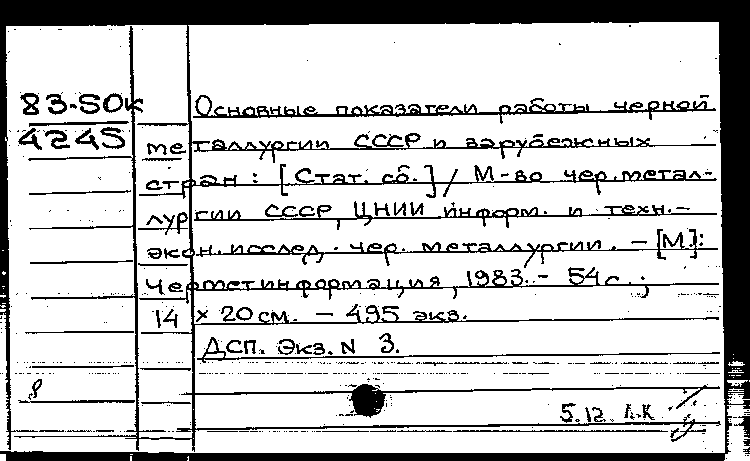 83-50к
4245
Основные показатели работы черной
металлургии СССР и зарубежных
стран : [Стат. сб.] / М-во чер. метал-
лургии СССР, ЦНИИ информ. и техн.-
экон. исслед. чер. металлургии. – [М]:
Черметинформация, 1983. – 54 с. ;
14 × 20 см. – 495 экз.
ДСП. Экз. N 3.
5.12. А.К